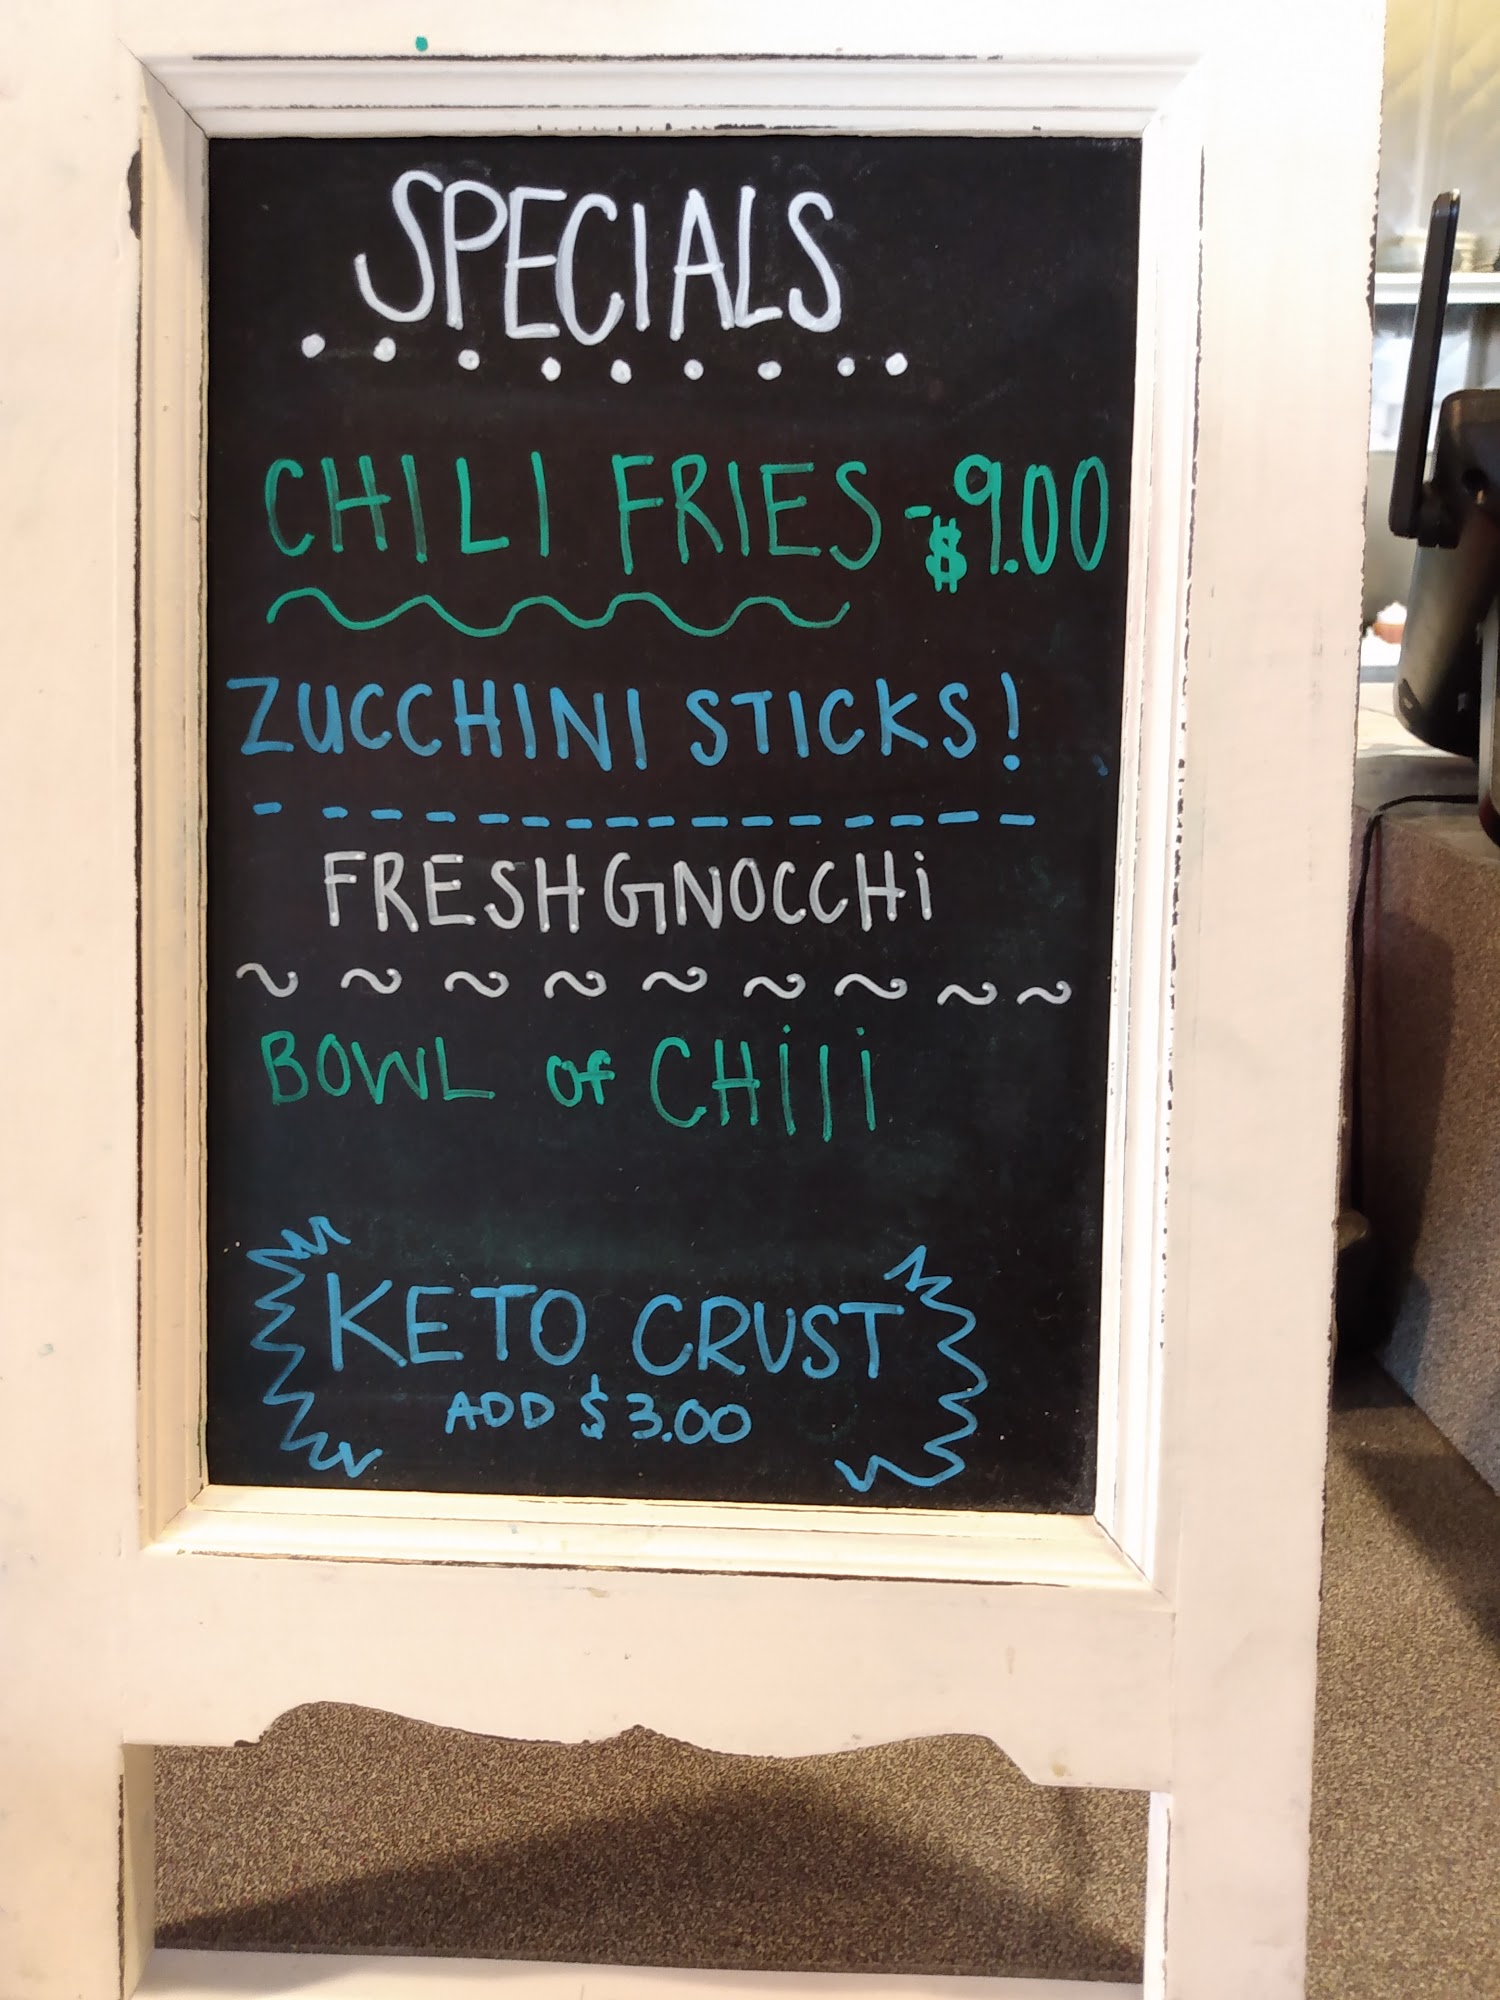 SPECIALS
CHILI FRIES - $9.00
ZUCCHINI STICKS!
FRESH GNOCCHi
BOWL of CHili
KETO CRUST
ADD $3.00